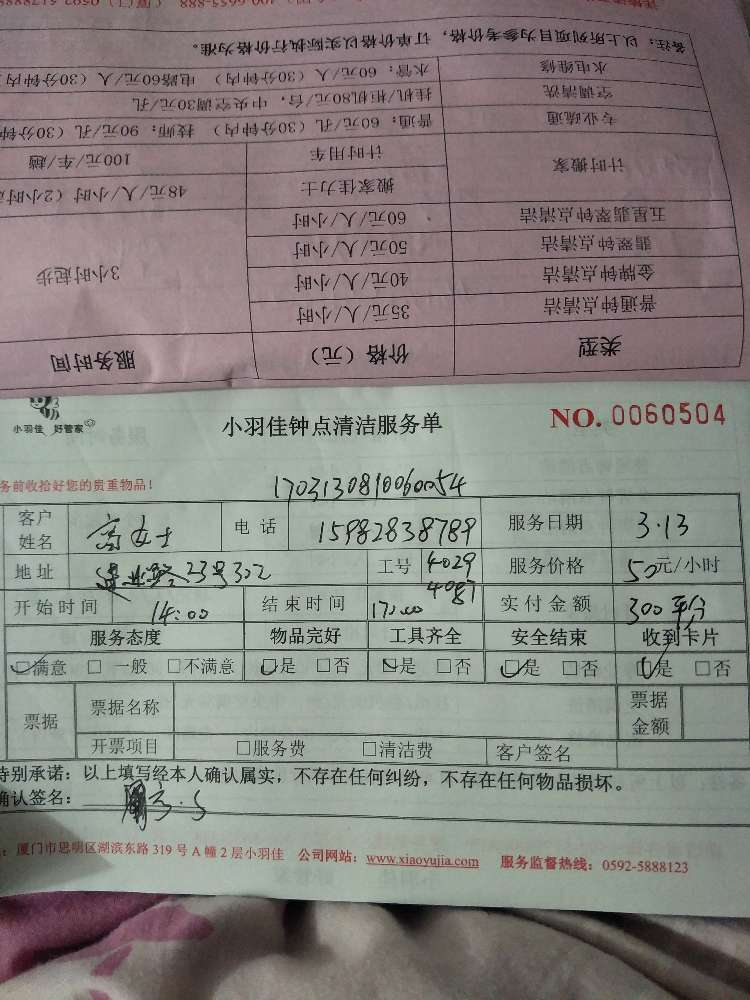 备注：以上所列项目为参考价格，订单价格以实际执行价格为准。
水电维修 水管：60元/人（30分钟内） 电路60元/人（30分钟内
空调清洗 挂机/柜机80元/台，中央空调30元/孔
专业疏通 普通：60元/孔（30分钟内） 技师：90元/孔（30分钟
计时搬家 计时用车 100元/车/趟
搬家佳力士 48元/人/小时（2小时
五星翡翠钟点清洁 60元/人/小时
翡翠钟点清洁 50元/人/小时 3小时起步
金牌钟点清洁 40元/人/小时
普通钟点清洁 35元/人/小时
类型 价格（元） 服务时间
小羽佳 好管家
小羽佳钟点清洁服务单
NO. 0060504
务前收拾好您的贵重物品！
1703130810060054
客户姓名 高女士 电话 15982838789 服务日期 3.13
地址 23号302 工号 4029 4087 服务价格 50元/小时
开始时间 14:00 结束时间 17:00 实付金额 300平台
服务态度 物品完好 工具齐全 安全结束 收到卡片
☑满意 □一般 □不满意 ☑是 □否 ☑是 □否 ☑是 □否 ☑是 □否
票据 票据名称 票据金额
开票项目 □服务费 □清洁费 客户签名
特别承诺：以上填写经本人确认属实，不存在任何纠纷，不存在任何物品损坏。
确认签名：
：厦门市思明区湖滨东路319号A幢2层小羽佳 公司网站：www.xiaoyujia.com 服务监督热线：0592-5888123